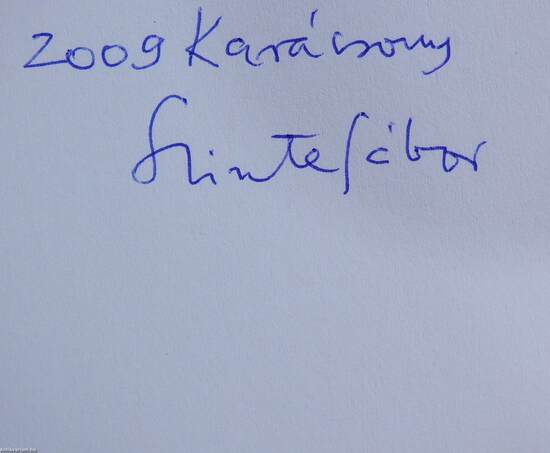 2009 Karácsony
Szinte Gábor
antikvarium.hu